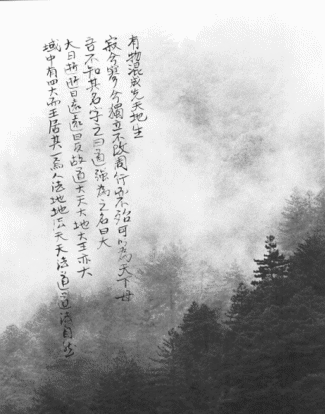 有物混成先天地生
寂兮寥兮獨立不改周行而不殆可以為天下母
吾不知其名字之曰道強為之名曰大
大曰逝逝曰遠遠曰反故道大天大地大王亦大
域中有四大而王居其一焉人法地地法天天法道道法自然